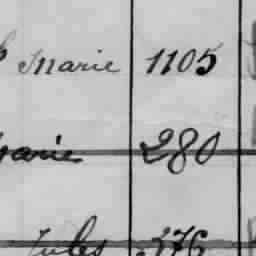 Marie 1105
Marie 280
Jules 376